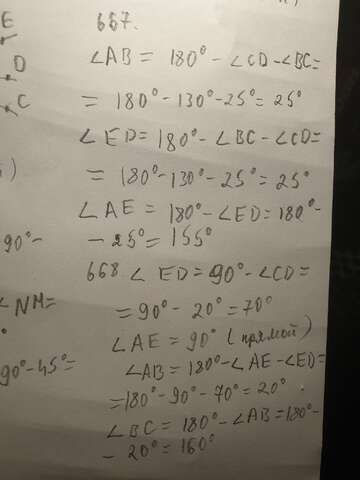 667.
E
∠AB = 180° - ∠CD - ∠BC =
D
C
= 180° - 130° - 25° = 25°
∠ED = 180° - ∠BC - ∠CD =
= 180° - 130° - 25° = 25°
)
∠AE = 180° - ∠ED = 180° -
90° -
- 25° = 155°
668. ∠ED = 90° - ∠CD =
∠NM =
= 90° - 20° = 70°
∠AE = 90° (прямой)
90° - 45° =
∠AB = 180° - ∠AE - ∠ED =
= 180° - 90° - 70° = 20°
∠BC = 180° - ∠AB = 180° -
- 20° = 160°